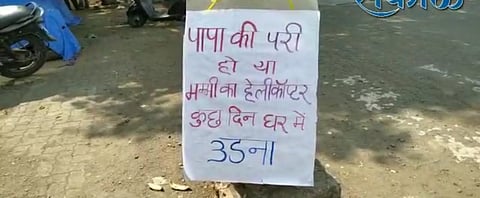 पापा की परी
हो या
मम्मी का हेलीकॉप्टर
कुछ दिन घर में
उडना